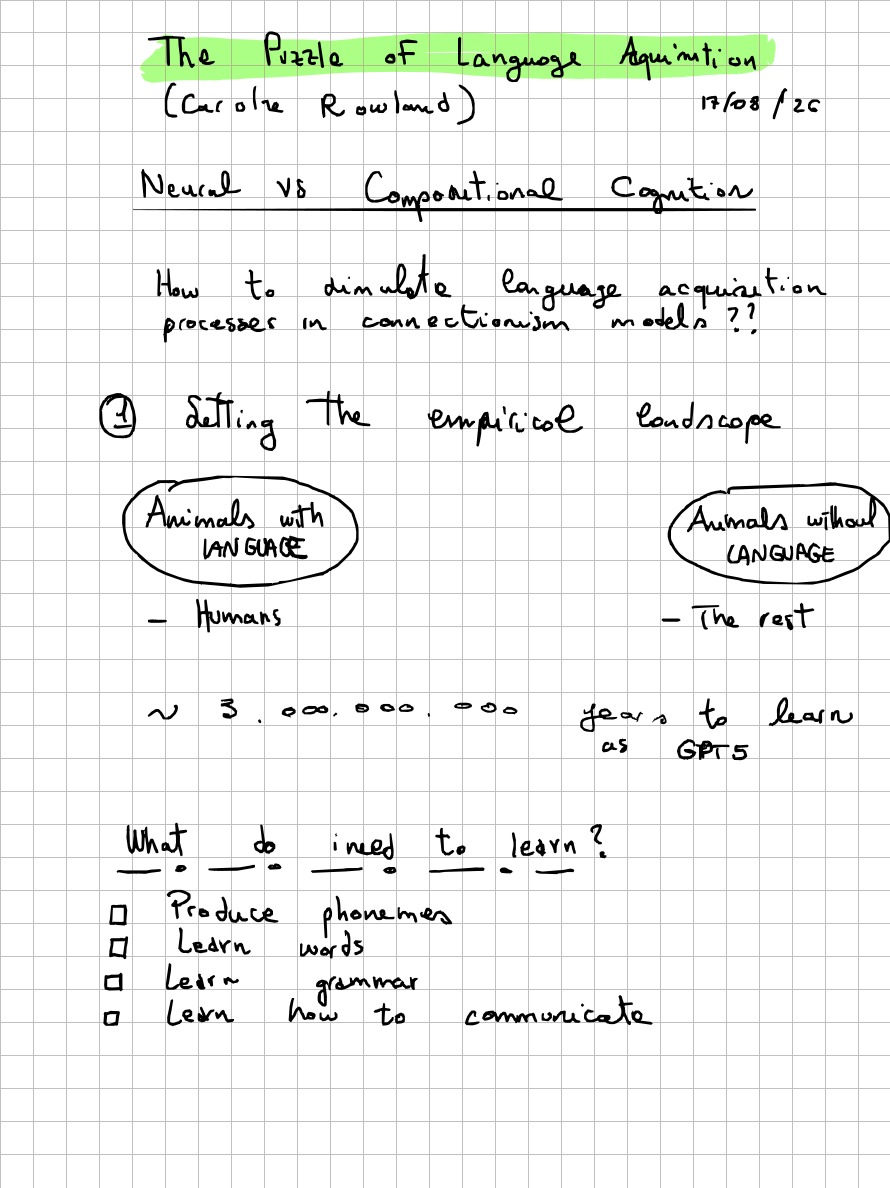 The Puzzle of Language Aquisition
(Caroline Rowland) 17/08/26
Neural vs Compositional Cognition
How to simulate language acquisition
processes in connectionism models??
1 Setting the empirical landscape
Animals with LANGUAGE
Animals without LANGUAGE
- Humans
- The rest
~ 3.000.000.000 years to learn
as GPT5
What do i need to learn?
□ Produce phonemes
□ Learn words
□ Learn grammar
□ Learn how to communicate